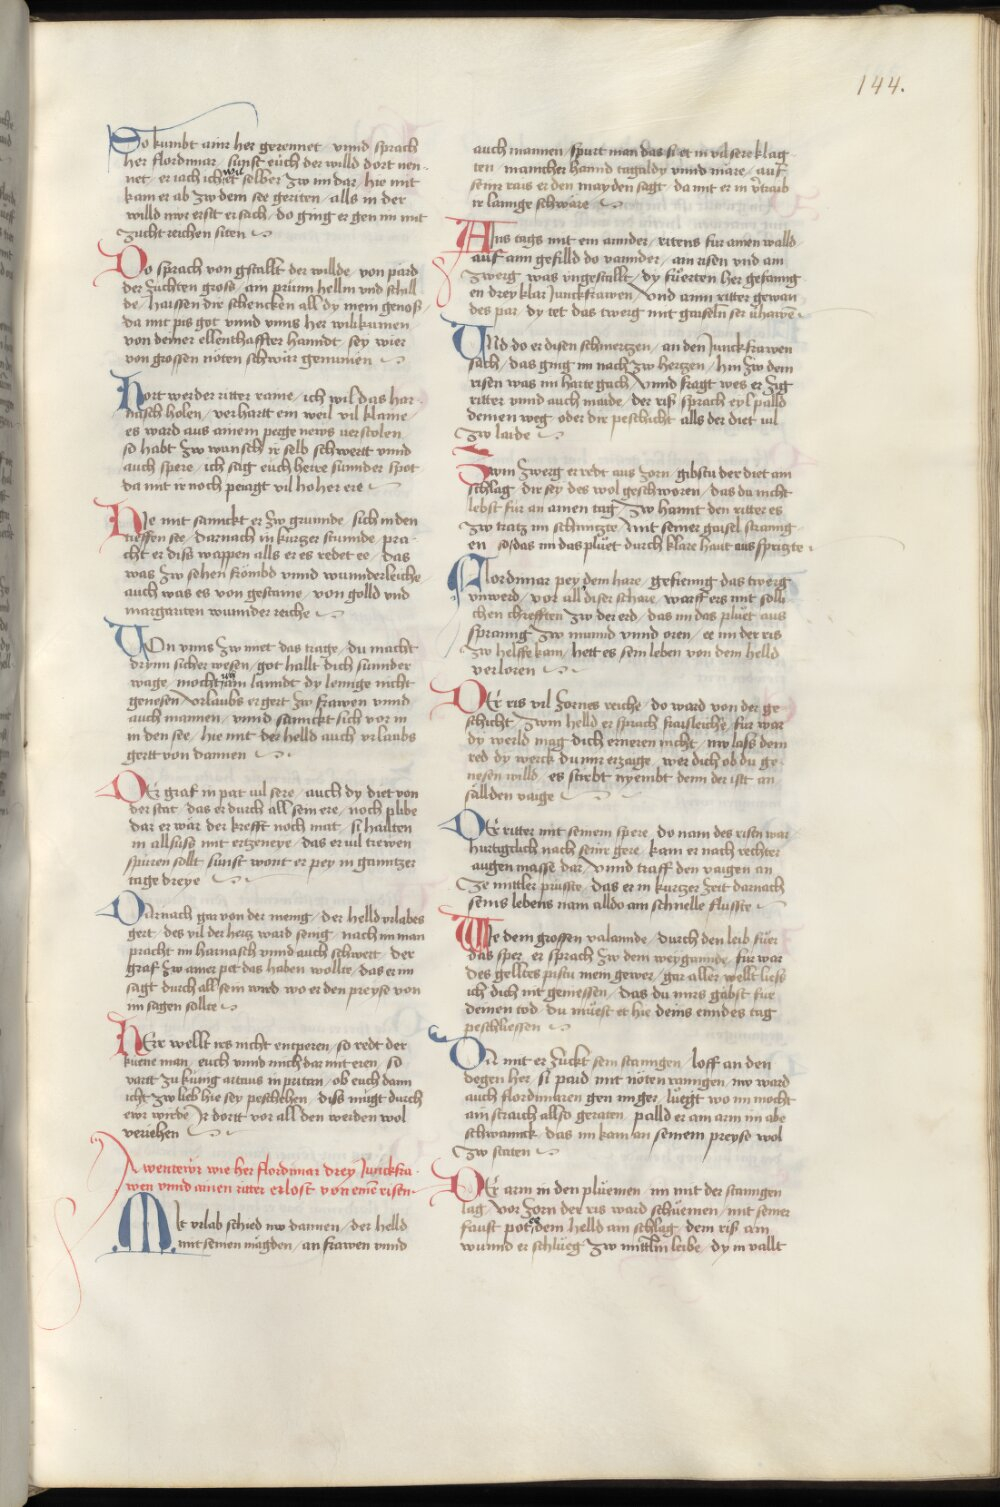 144.
So kumbt ainr her gerennet / vnnd sprach
her flordimar / sunst euch der willd dort nen-
net / er iach ich wil selber zw im dar / hie mit
kam er ab zw dem see geriten / alls in der
willd nwr erst ersach / do ging er gen im mit
zucht reichen siten
Do sprach von gstallt der willde / von pard
der zuchten gross / am prünn hellm vnd schill
de / harssen dir schencken all dy mein genoss /
da mit pis got vnnd vnns her wilkumen
von deiner ellenthaffter hanndt / sey wier
von grossen nöten schwär genumen
Hort werder ritter raine / ich wil das har-
nasch holen / verhartt ein weil vil klaine /
es ward aus ainem perge news verstolen
so habt zw wunsch ir selb schwertt vnnd
auch spere / ich sag euch herre sunnder spot
da mit ir noch peiagt vil hoher ere
Hie mit sannckt er zw grunnde / sich in den
tieffen see / darnach in kurtzer stunnde / pra-
cht er diss wappen alls er es redet ee / das
was zw sehen frömbd vnnd wunnderleiche
auch was es von gestaine / von golld vnd
margariten wunnder reiche
Von vnns zw miet das trage / du macht
drynn sicher wesen / got hallt dich sunnder
wage / mocht im lanndt dy lennge nicht
genesen / vrlaubs er gert zw frawen vnnd
auch mannen / vnnd sannckt sich vor in
in den see / hie mit der helld auch vrlaubs
gertt von dannen
Der graf in pat vil sere / auch dy diet von
der stat / das er durch all sein ere / noch plibe
dar er wär der krefft noch mat / si hailten
in allsuss mit ertzeneye / das er vil trewen
spüren sollt / sunst wont er pey in ganntzer
tage dreye
Darnach gar von der menig / der helld vrlabes
gert / des vil der hertz ward senig / nach im man
pracht im harnasch vnnd auch schwert / der
graf zw ainer pet das haben wollte / das er im
sagt durch all sein wird wo er den preyse von
im sagen sollte
Herr wellt irs nicht entperen / so redt der
kuene man / euch vnnd mich dar mit eren / so
vartt zu künig artaus in pritan / ob euch dann
icht zw lieb hie sey peschehen / diss mügt durch
ewr wirde / Ir dortt vor all den werden wol
veriehen
Awenteẅr wie her flordimar drey Junckfra-
wen vnnd ainen ritter erlost von eine risen
Mit vrlab schied nw dannen / der helld
mit seinen mägden / an frawen vnnd
auch mannen / spürt man das si et in vil sere klag
ten / manncher hannd tugaldy vnnd mare / auf
seinr rais er den mayden sagt / da mit er in vertraib
ir lannge schwäre
Ains tags mit ein annder / ritens für ainen walld
auf ain gefilld do vannder / ain risen vnd ain
zwerg was vngestallt / dy füerten her gefanng
en drey klar Junckfrawen / vnd ainn ritter gewan
des par / dy tet das twerg mit gaiseln ser verhawen
Vnd do er disen schmertzen / an den Junckfrawen
sach / das ging im nach zw hertzen / hin zw dem
risen was im harte gach / vnnd fragt wes er zig
ritter vnnd auch maide / der riss sprach eyl palld
deinen weg / oder dir peschicht alls der diet vil
zw laide
Zwm zwerg er redt aus zorn / gibstu der diet ain
schlag / dir sey des wol geschworen / das du nicht
lebst für an ainen tag / zw hannt den ritter es
zw tratz im schmitzte / mit seiner gaisel stranng-
en so das im das pluet durch klare haut aus spritzte
Flordimar pey dem hare / gefienng das twerg
vnwerd / vor all diser schare / warff ers mit soll
chen chrefften zw der erd / das im das pluet aus
spranng zw munnd vnnd oren / ee im der ris
zw helffe kam / hett es sein leben von dem helld
verloren
Der ris vil zornes reiche / do ward von der ge
schicht / zwm helld er sprach fraisleiche / für war
dy werld mag dich erneren nicht / nw lass dein
red dy werck du mir ertzaige / wer dich ob du ge-
nesen willd / es stirbt nyembt denn der istt an
sällden vaige
Der ritter mit seinem spere / do nam des risen war
hurtigclich nach seinr gere / kam er nach rechter
augen masse dar / vnnd traff den vaigen an
ze mittler prusste / das er in kurtzer zeit darnach
seins lebens nam alldo ain schnelle flusste
Wie dem grossen valannde / durch den leib füer
das sper / er sprach zw dem weygannde / für war
des gelltes pistu mein gewer / gar aller wellt liess
ich dich nit geniessen / das du mirs gäbst für
deinen tod / du müest et hie deins enndes tag
peschliessen
Da mit er zuckt sein stanngen / loff an den
degen her / si paid mit nöten ranngen / nw ward
auch flordimaren gen in ger / luegt wo im mocht
ain straich allso geraten / palld er ain arm im abe
schwannck / das im kam an seinem preyse wol
zw staten
Der arm in den pluemen / im mit der stanngen
lag / vor zorn der ris ward schuemen / mit seiner
faust pot er dem helld ain schlag / dem riss ain
wunnd er schlueg zw mittlm leibe / dy in vallt